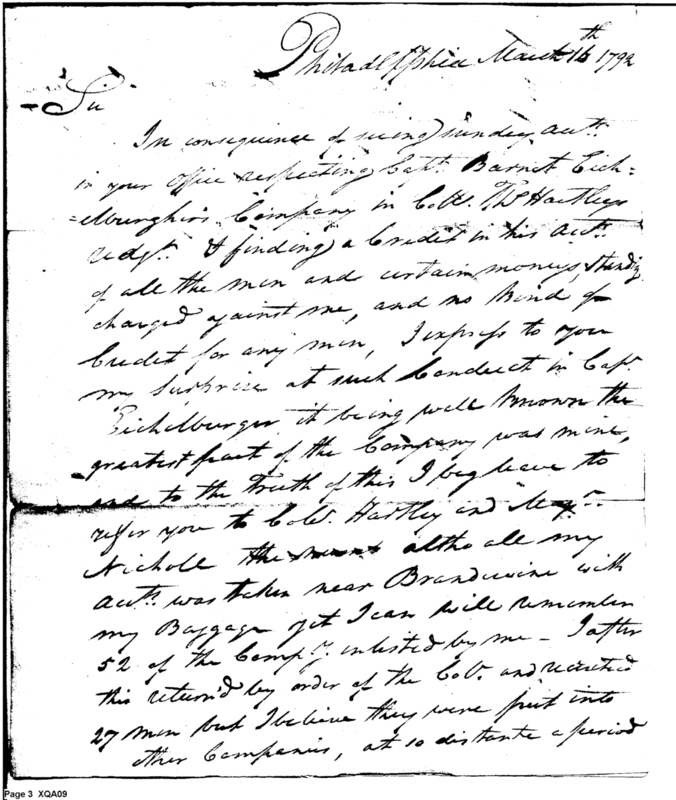 Philadelphia March 16th 1792
Sir
In consequence of seeing sunday accts.
in your office respecting Capt. Barnet Eich=
=elburghirs Company in Col. Ths Hartleys
Redgt. & finding a Credit in his acct.
of all the men and certain moneys, standg
charged against me, and no kind of
Credit for any men, I express to you
my Surprise at such Conduct in Capt.
Eichelburger it being well known the
greatest part of the Company was mine,
and to the truth of this I beg leave to
refer you to Col. Hartley and Majr.
Nicholl the altho all my
accts. was taken near Brandiwine with
my Baggage yet I can well remember
52 of the Compy. inlisted by me - I after
this return'd by order of the Col. and recruited
27 men but I believe they were put into
other Companies, at so distante a period
Page 3 XQA09